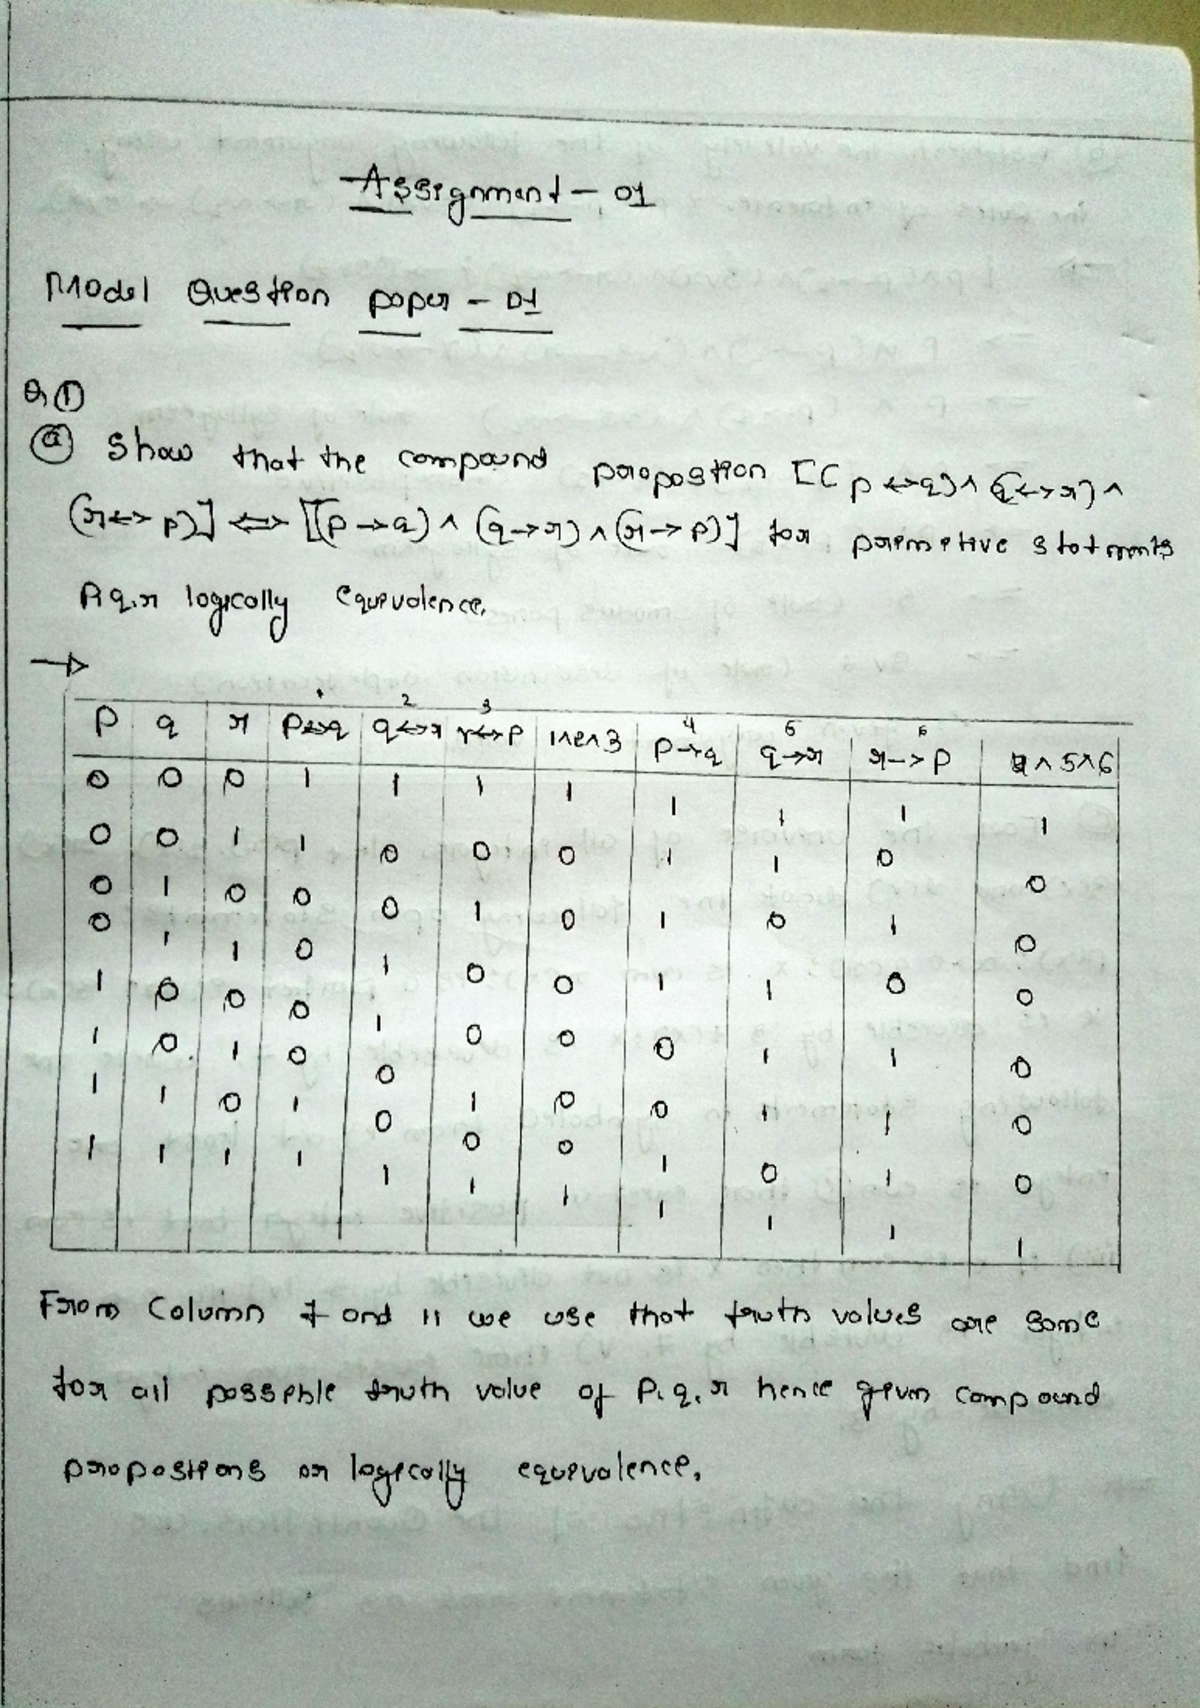 Assignment - 01
Model Question paper - 01
Q ①
ⓐ Show that the compound proposition [(p ↔ q) ∧ (q ↔ r) ∧
(r ↔ p)] ⇔ [(p → q) ∧ (q → r) ∧ (r → p)] for premetive statments
P, q, r logically equevalence.
→
1 2 3 4 5 6
P q r p↔q q↔r r↔p 1∧2∧3 p→q q→r r→p 4∧5∧6
0 0 0 1 1 1 1 1 1 1 1
0 0 1 1 0 0 0 1 1 0 0
0 1 0 0 0 1 0 1 0 1 0
0 1 1 0 1 0 0 1 1 0 0
1 0 0 0 1 0 0 0 1 1 0
1 0 1 0 0 1 0 0 1 1 0
1 1 0 1 0 0 0 1 0 1 0
1 1 1 1 1 1 1 1 1 1 1
From Column 7 and 11 we use that truth values are same
for all posseble truth value of P, q, r hence given compound
propositions or logically equevalence.